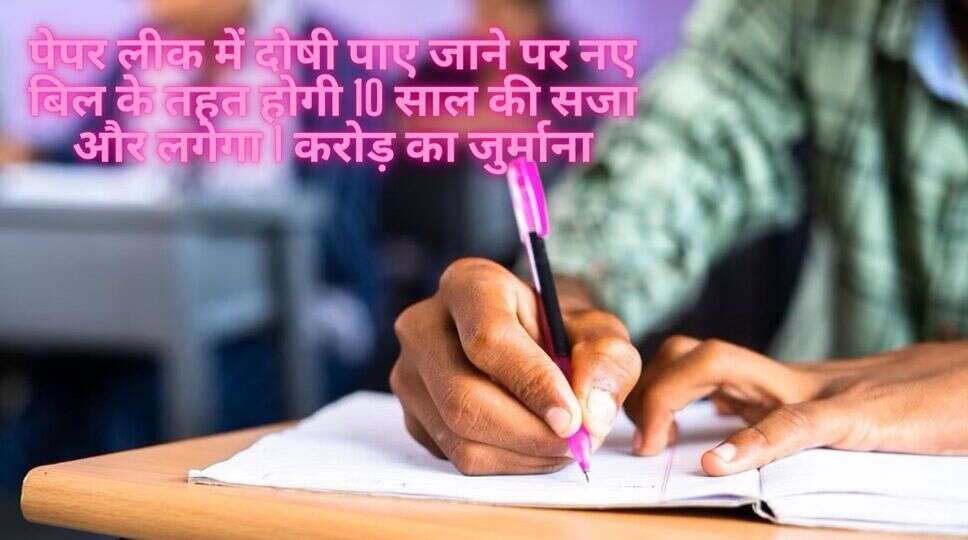 पेपर लीक में दोषी पाए जाने पर नए
बिल के तहत होगी 10 साल की सजा
और लगेगा 1 करोड़ का जुर्माना